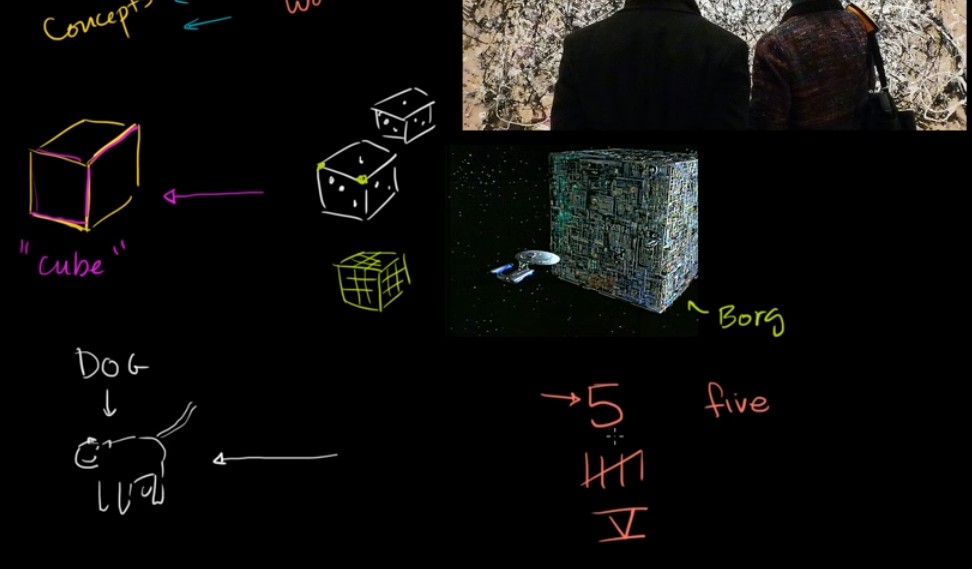 Concepts
"cube"
Borg
DOG
5 five
V